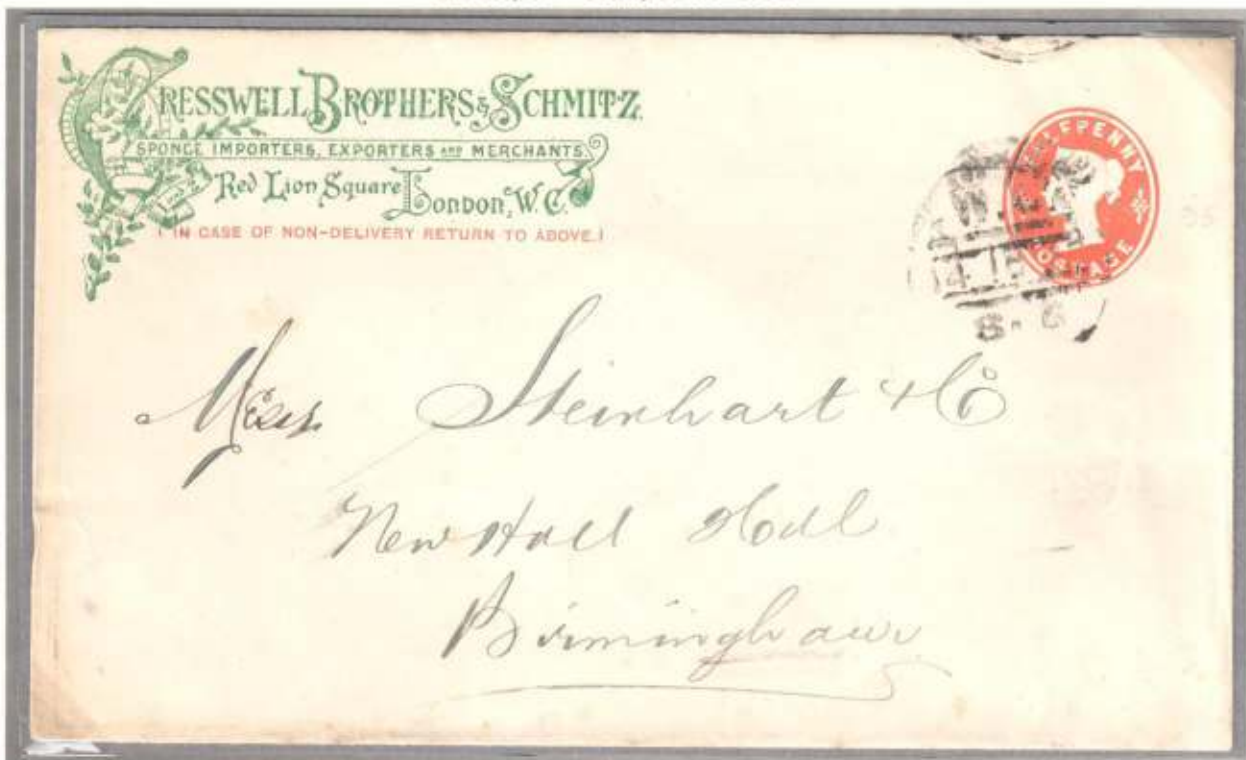 CRESSWELL BROTHERS & SCHMITZ.
SPONGE IMPORTERS, EXPORTERS AND MERCHANTS.
Red Lion Square London, W.C.
( IN CASE OF NON-DELIVERY RETURN TO ABOVE. )
HALFPENNY
POSTAGE
Messrs Steinhart & Co
New Hall Hill
Birmingham